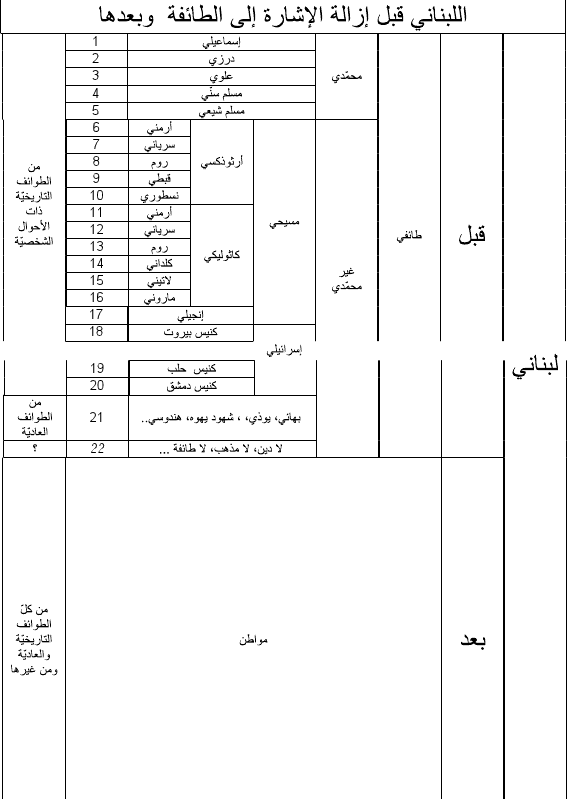 اللبناني قبل إزالة الإشارة إلى الطائفة وبعدها
لبناني
قبل
طائفي
محمّدي
إسماعيلي
1
درزي
2
علوي
3
مسلم سنّي
4
مسلم شيعي
5
غير
محمّدي
مسيحي
أرثوذكسي
أرمني
6
سرياني
7
روم
8
قبطي
9
نسطوري
10
كاثوليكي
أرمني
11
سرياني
12
روم
13
كلداني
14
لاتيني
15
ماروني
16
إنجيلي
17
إسرائيلي
كنيس بيروت
18
كنيس حلب
19
كنيس دمشق
20
من
الطوائف
التاريخيّة
ذات
الأحوال
الشخصيّة
بهائي، يوذي، ، شهود يهوه، هندوسي..
21
من
الطوائف
العاديّة
لا دين، لا مذهب، لا طائفة ...
22
؟
بعد
مواطن
من كلّ
الطوائف
التاريخيّة
والعاديّة
ومن غيرها